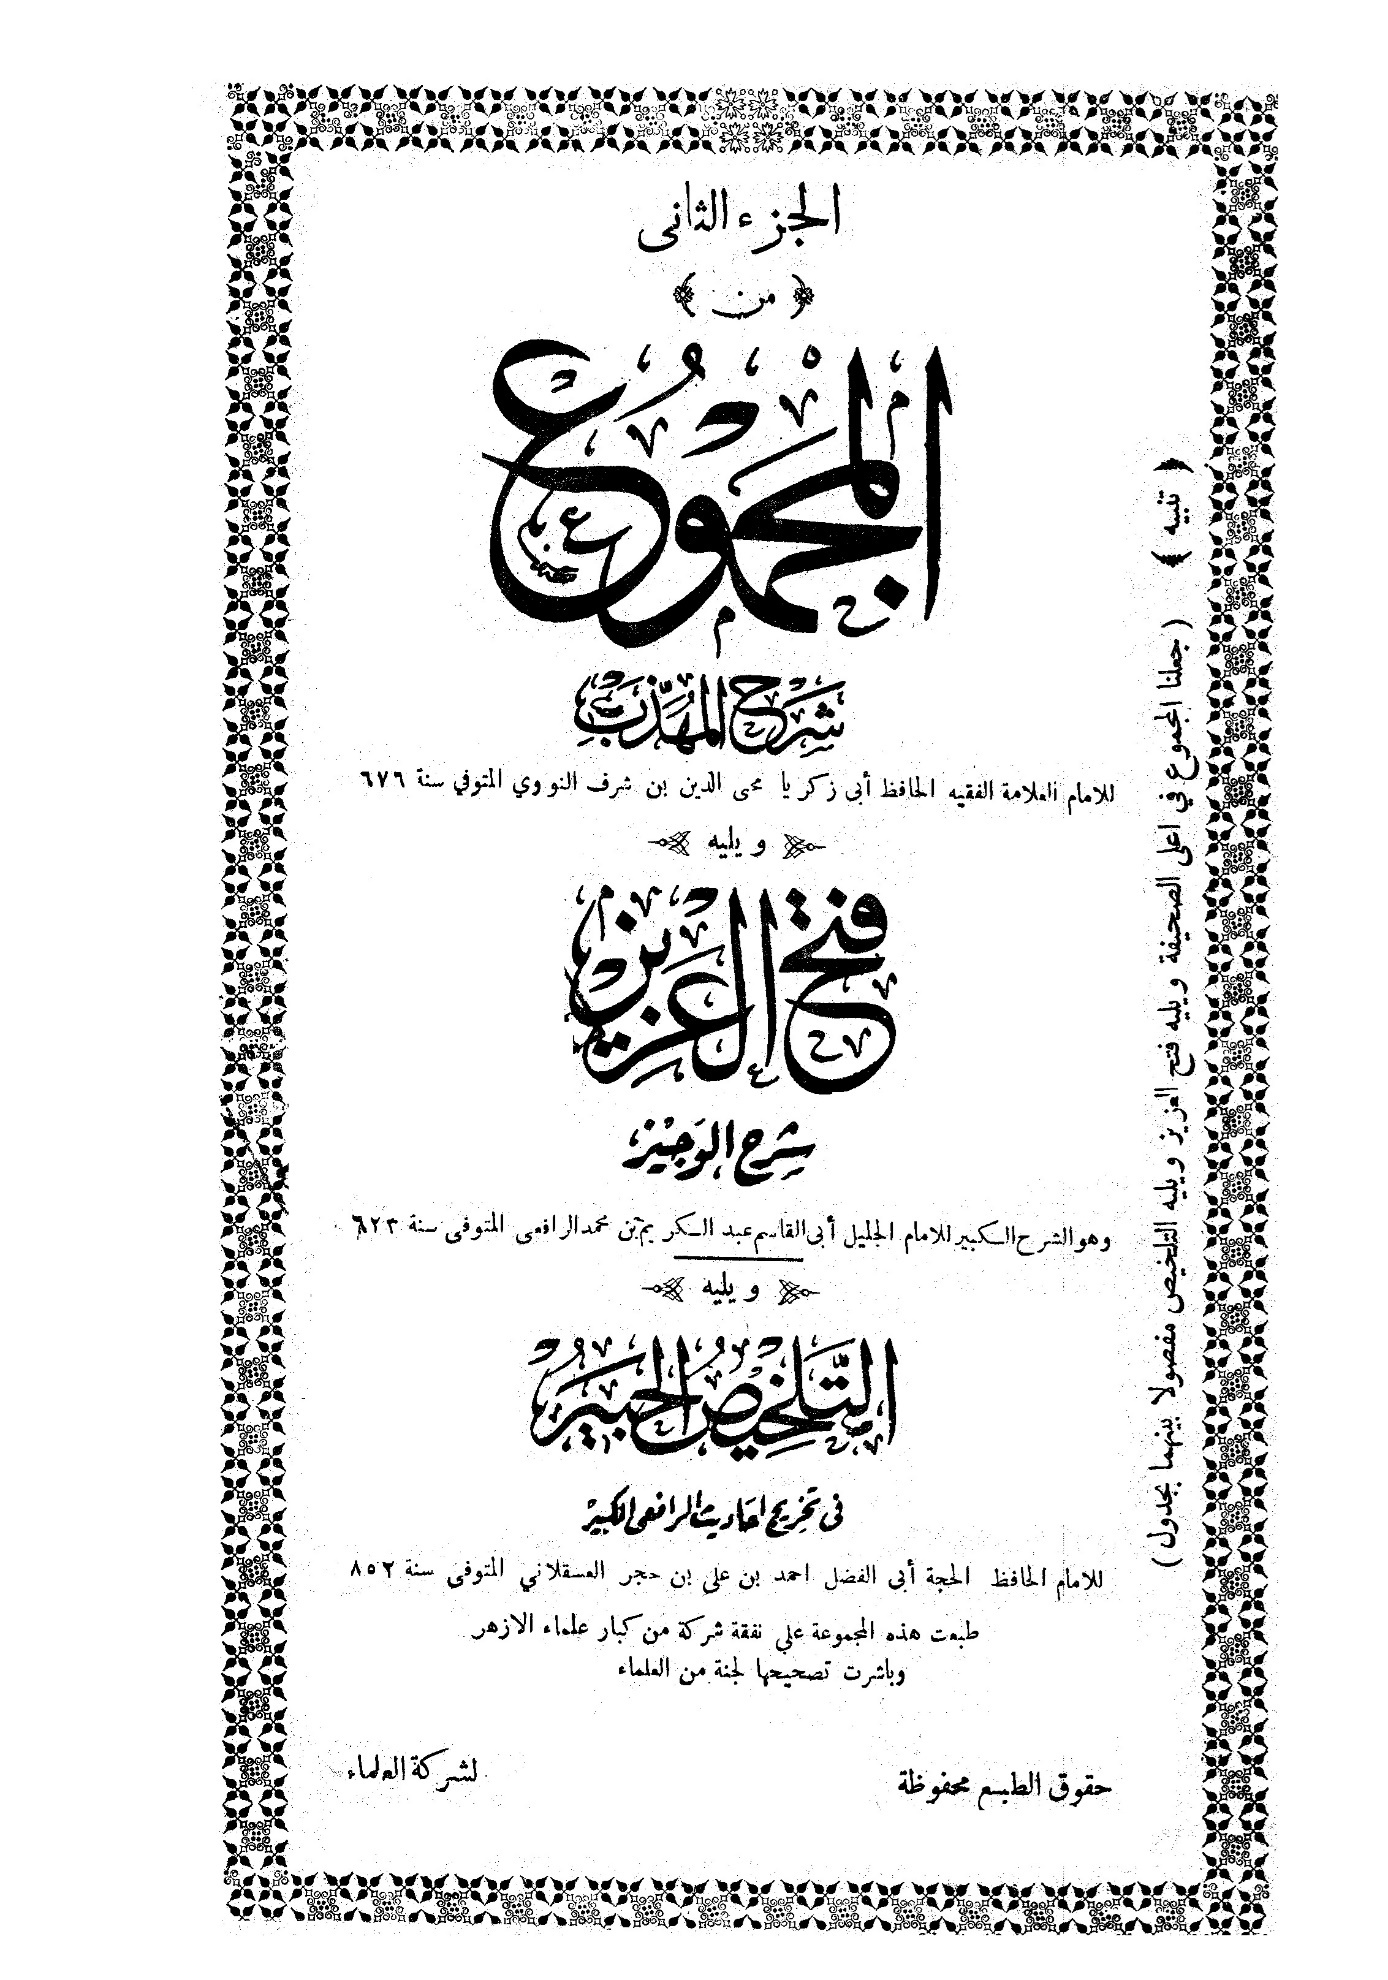 الجزء الثانى
﴿ من ﴾
المجموع
شرح المهذب
للامام العلامة الفقيه الحافظ أبى زكريا محى الدين بن شرف النووي المتوفي سنة ٦٧٦
ويليه
فتح العزيز
شرح الوجيز
وهو الشرح الكبير للامام الجليل أبى القاسم عبد الكريم بن محمد الرافعى المتوفى سنة ٦٢٣
ويليه
التلخيص الحبير
فى تخريج احاديث الرافعى الكبير
للامام الحافظ الحجة أبى الفضل احمد بن على بن حجر العسقلاني المتوفى سنة ٨٥٢
طبعت هذه المجموعة علي نفقة شركة من كبار علماء الازهر
وباشرت تصحيحها لجنة من العلماء
حقوق الطبع محفوظة
لشركة العلماء
﴿ تنبيه ﴾ (جعلنا المجموع في اعلى الصحيفة ويليه فتح العزيز ويليه التلخيص مفصولا بينهما بجدول)